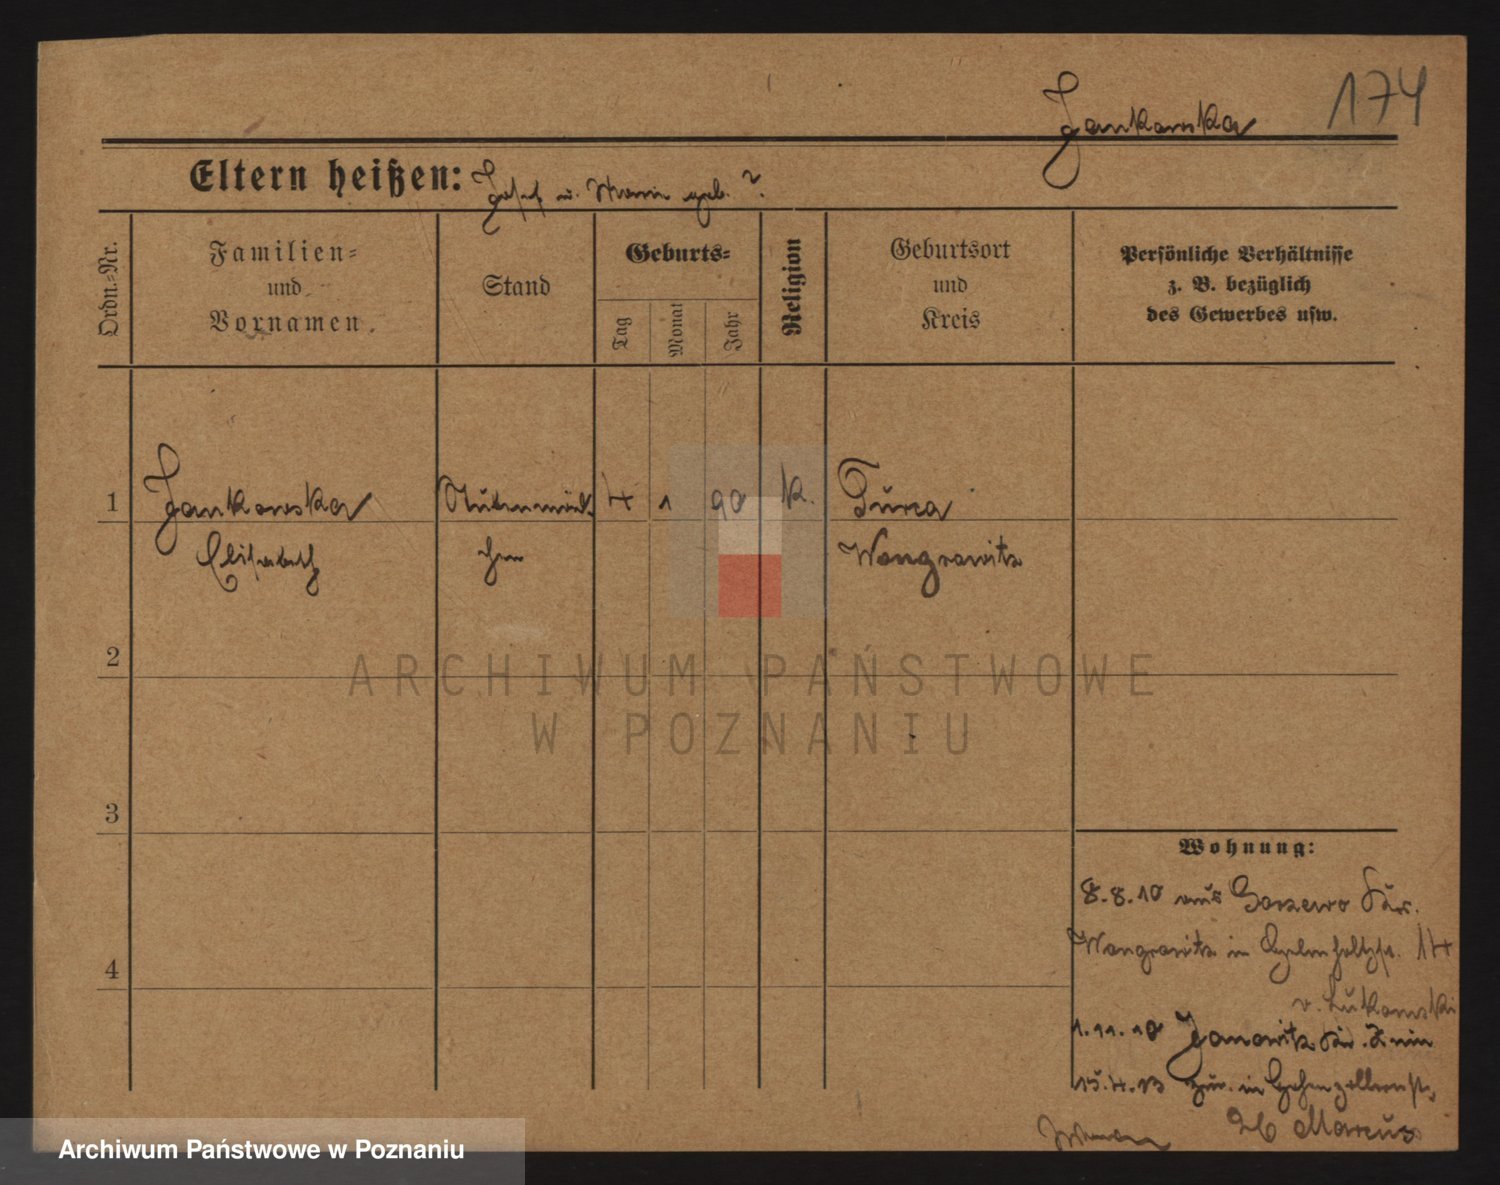 Jankowska 174
Eltern heißen: Josef u. Maria geb. ?.
Ordn.-Nr.
Familien=
und
Vornamen.
Stand
Geburts=
Tag
Monat
Jahr
Religion
Geburtsort
und
Kreis
Persönliche Verhältnisse
z. B. bezüglich
des Gewerbes usw.
1 Jankowska 4 1 90 k. Turza
Elisabeth Wongrowitz
2
3
4
Wohnung:
8.8.10 aus Gorzewo Kr.
Wongrowitz in 14
v. Lukomski
1.11.10 Janowitz Kr. Znin
15.4.13 zur. in Hohenzollernst.
26 Marcus
ARCHIWUM PAŃSTWOWE
W POZNANIU
Archiwum Państwowe w Poznaniu